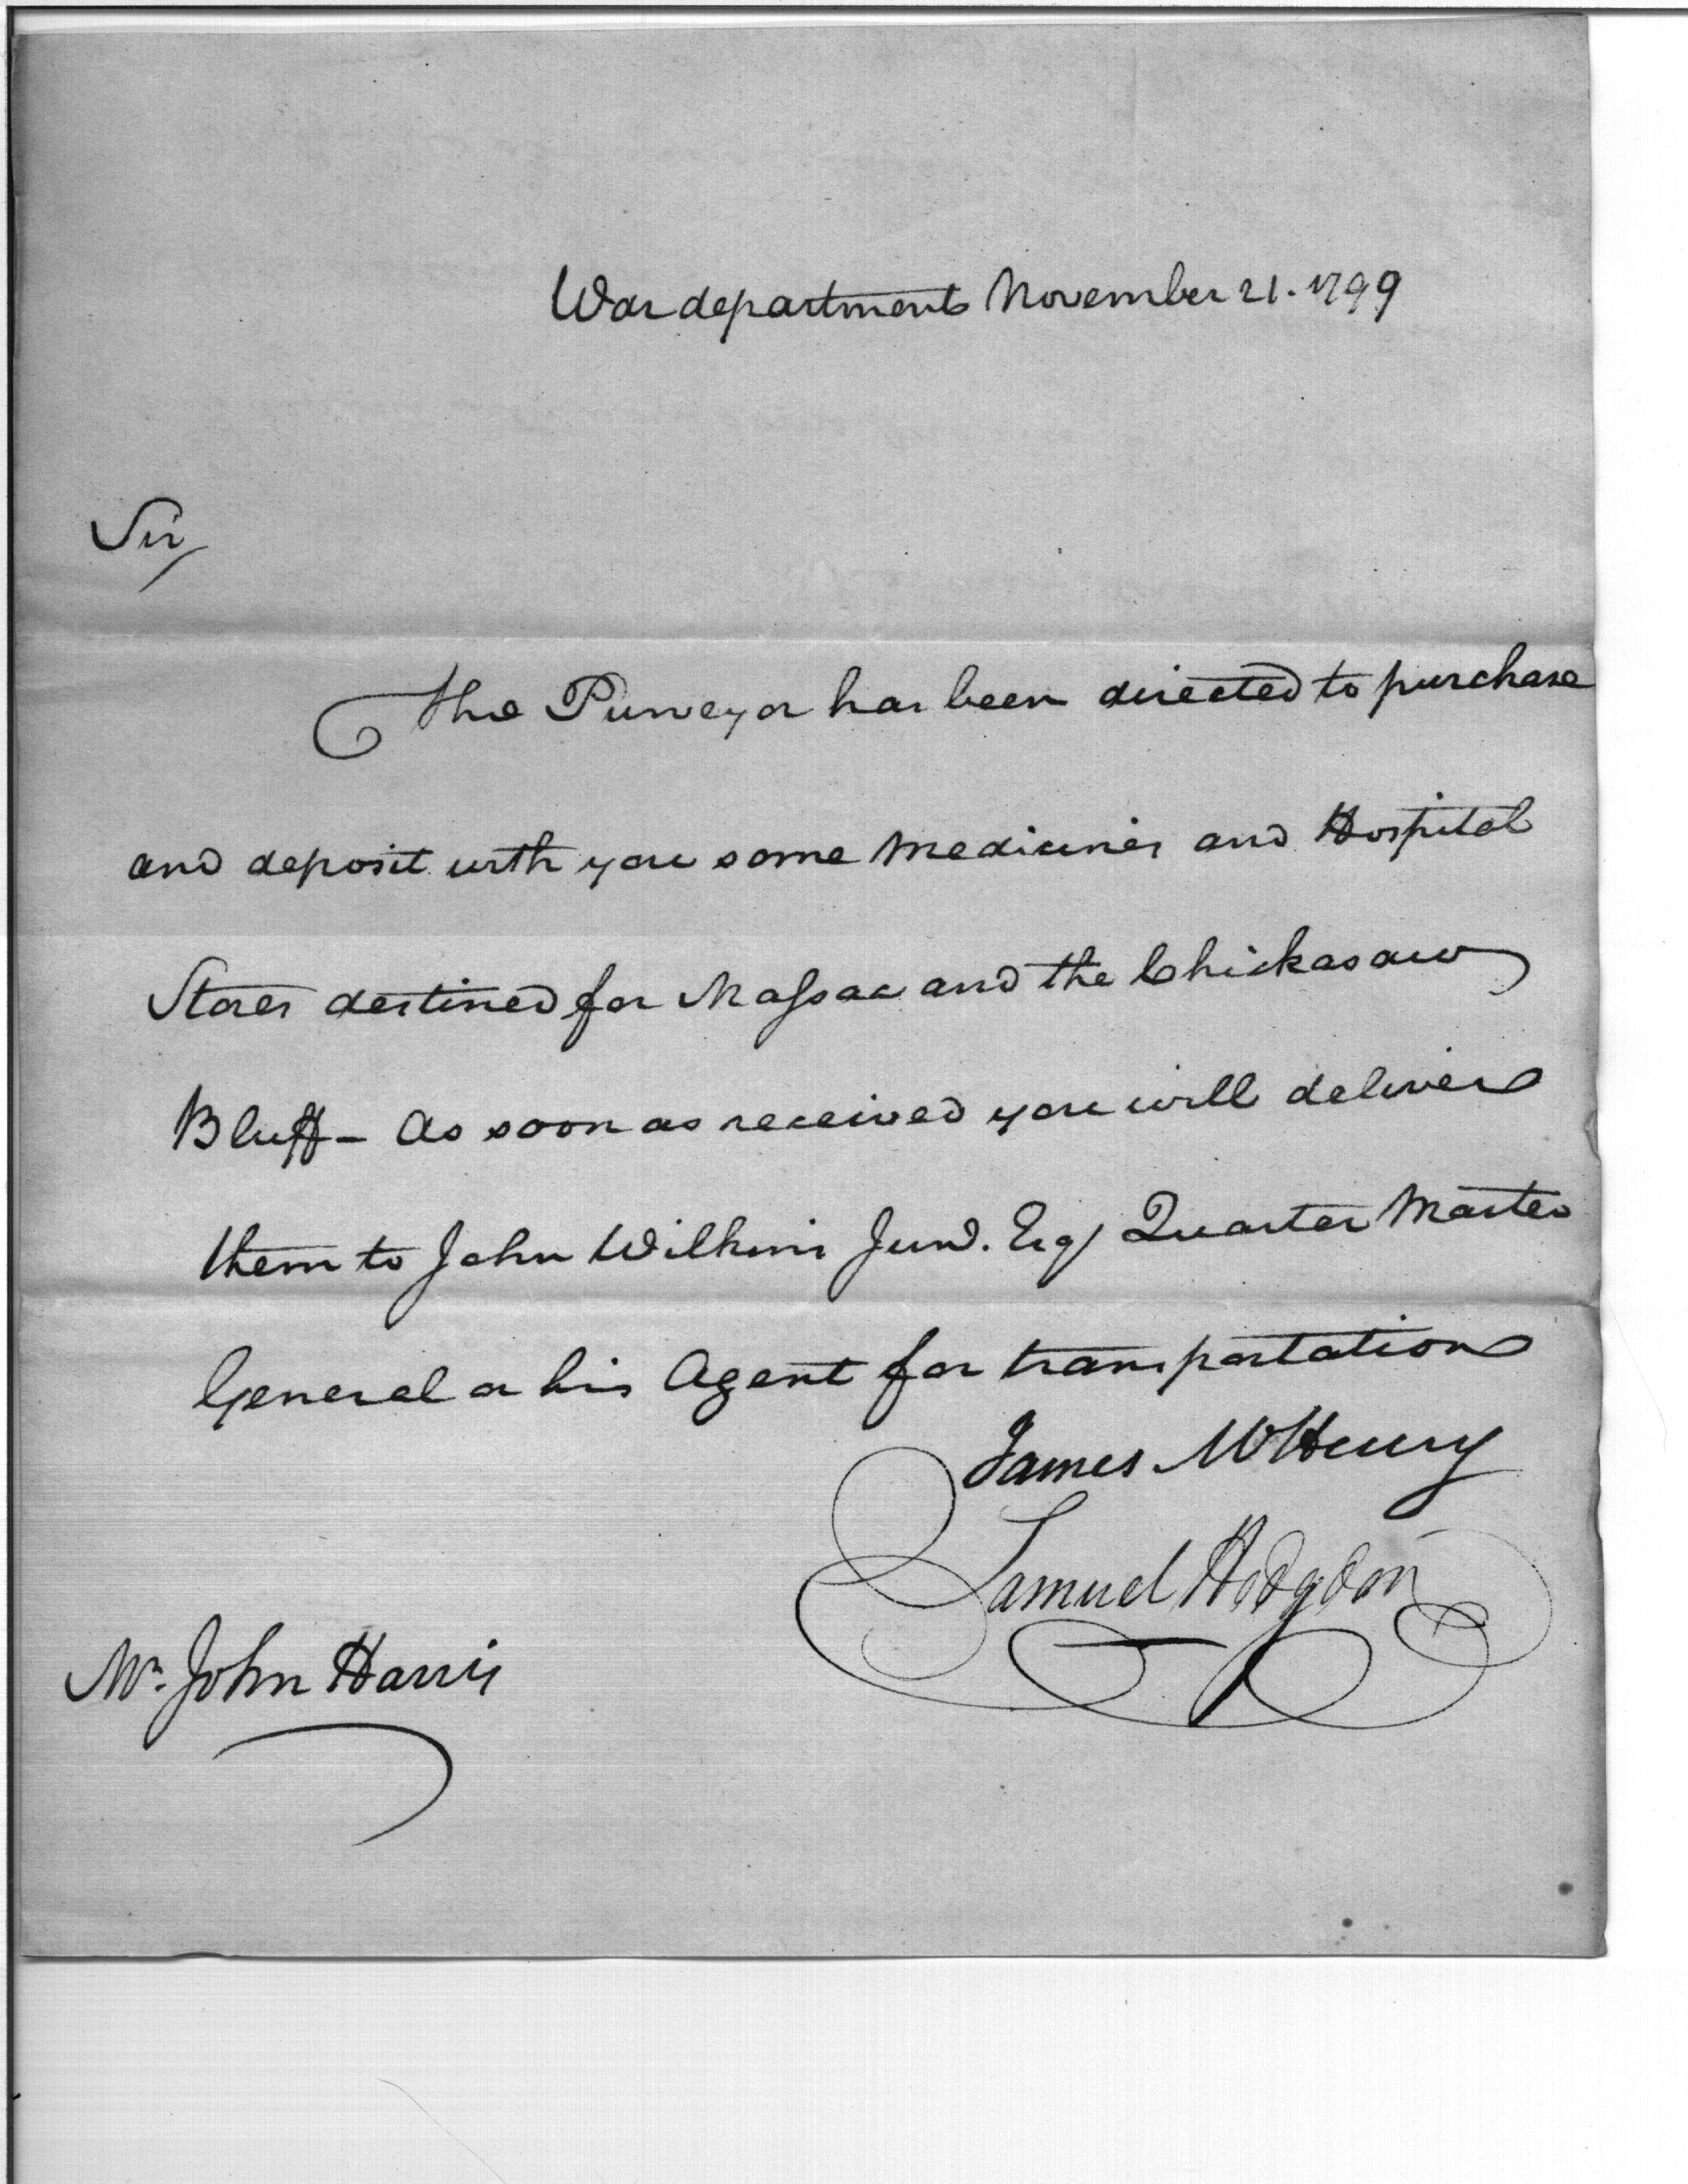 War department November 21. 1799
Sir,
The Purveyor has been directed to purchase
and deposit with you some medicines and Hospital
Stores destined for Massac and the Chickasaw
Bluff – As soon as received you will deliver
them to John Wilkins Junr. Esq Quarter Master
General or his Agent for transportation
James McHenry
Samuel Hodgdon
Mr. John Harris